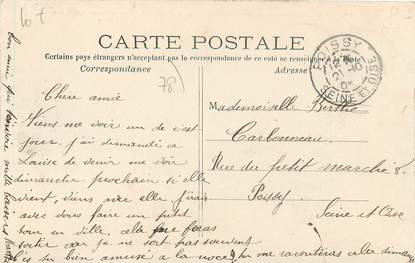 10 f
CARTE POSTALE
Certains pays étrangers n'acceptant pas la correspondance de ce côté se renseigner à la Poste
Correspondance
Adresse
78
POISSY
SEINE ET OISE
Chere amie
Viens me voir un de c'est
jour, j'ai demandés a
Louise de venir me voir
dimanche prochain si elle
vient, viens avec elle j'irais
avec vous faire un petit
tour en ville, cela feras
sortir car ça ne sort pas souvent
bien amuse a la noce, tu me raconteras cela dimanche
ton amie qui mille baisers
Mademoiselle Berthe
Carbonneau
Rue du petit marché 8
Poissy
Seine et Oise